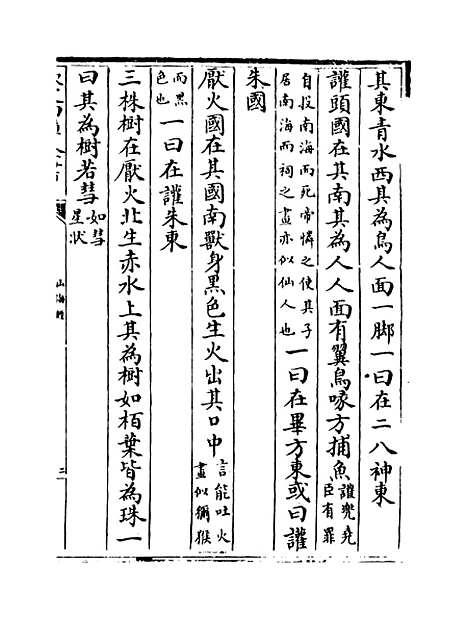 其東青水西其為鳥人面一脚一曰在二八神東
讙頭國在其南其為人人面有翼鳥喙方捕魚讙兜堯臣有罪
自投南海而死帝憐之使其子居南海而祠之畫亦似仙人也一曰在畢方東或曰讙
朱國
厭火國在其國南獸身黑色生火出其口中言能吐火畫似獼猴
而黑色也一曰在讙朱東
三株樹在厭火北生赤水上其為樹如栢葉皆為珠一
曰其為樹若彗如彗星狀
山海經
三